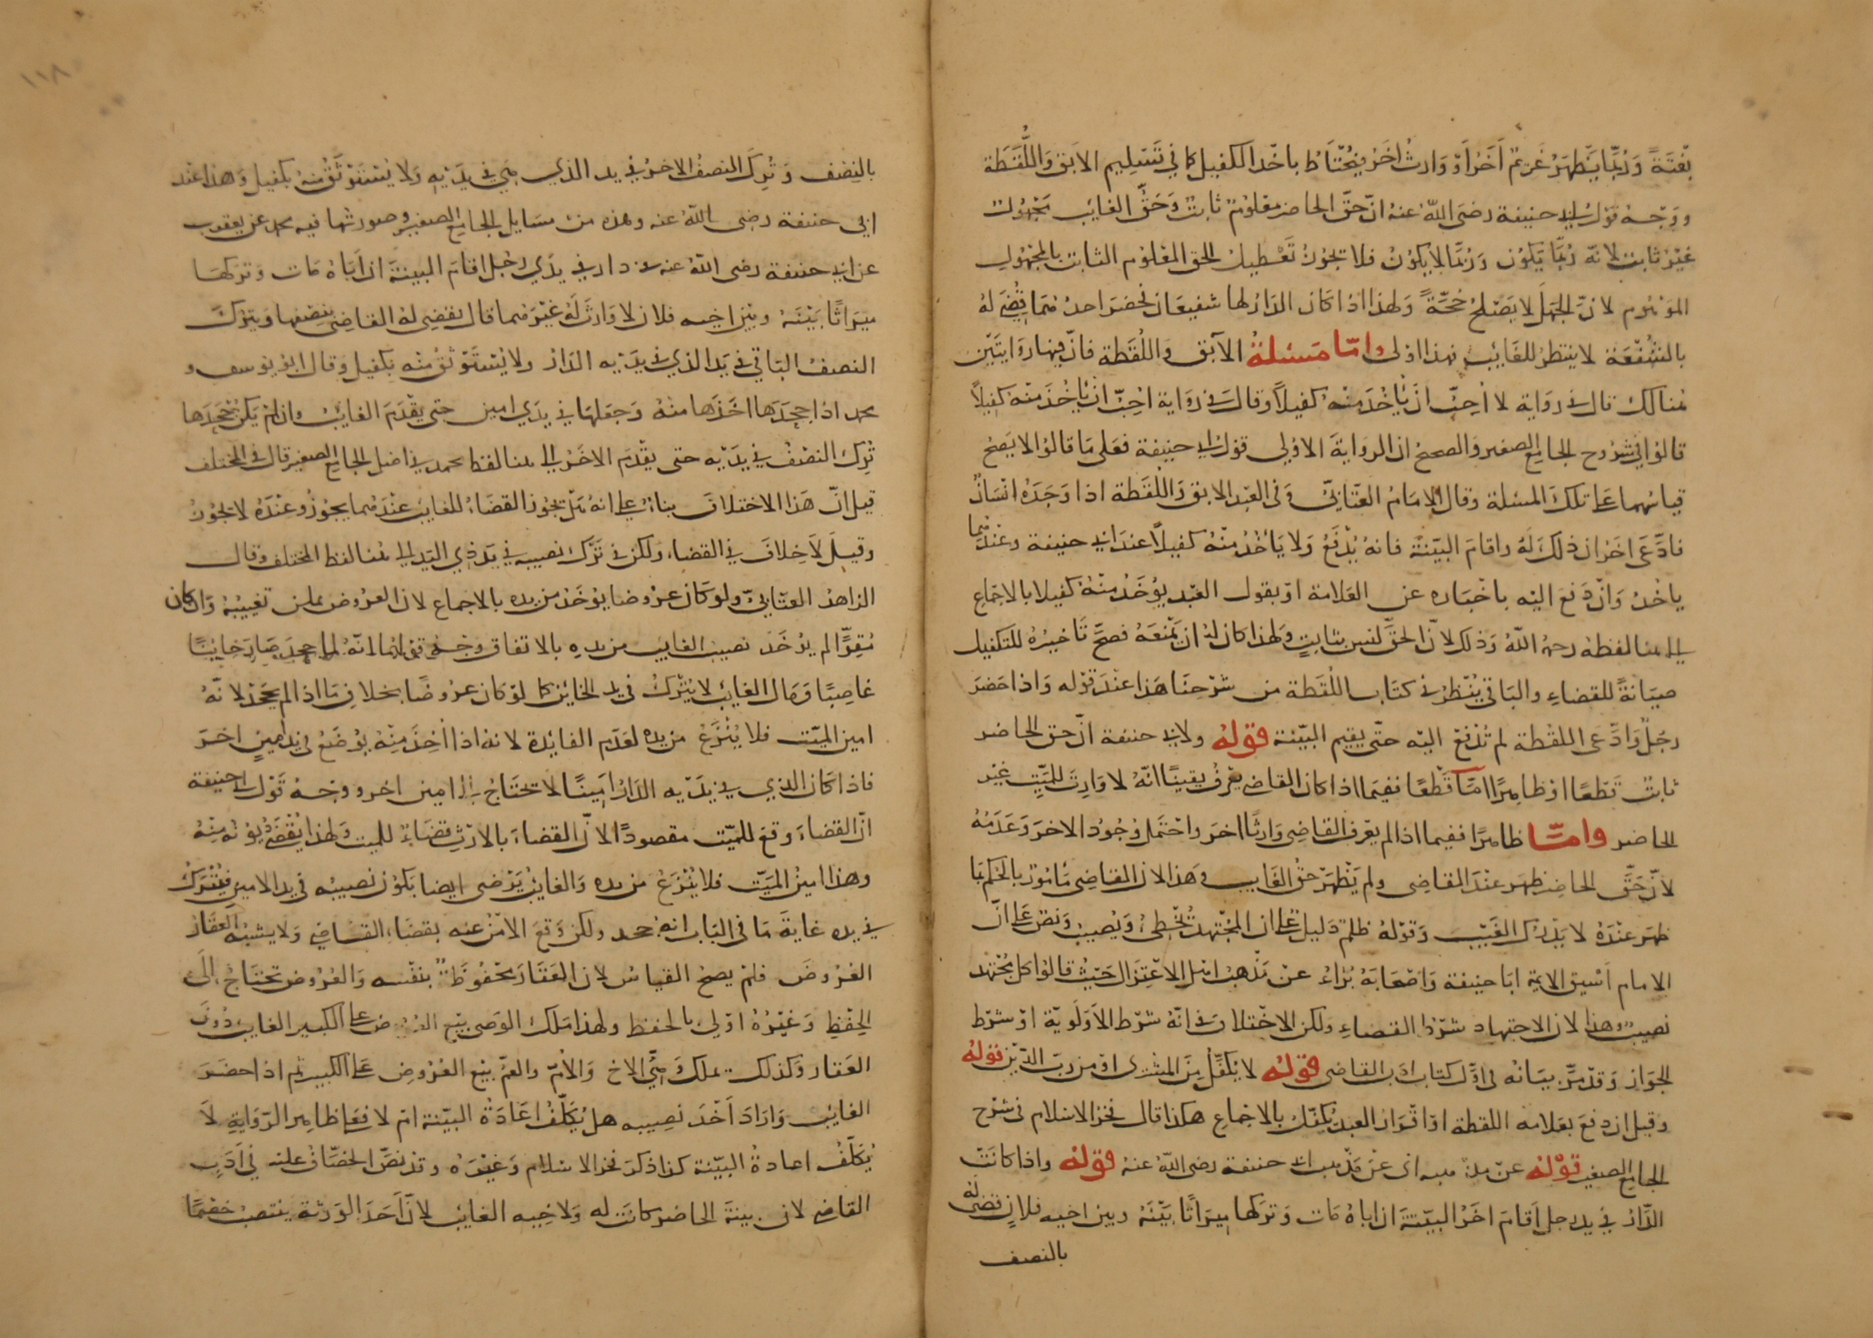 بغتة وربما يظهر غريم آخر أو وارث آخر فيحتاط بأخذ الكفيل كما في تسليم الابق واللقطة
ووجه قول ابي حنيفة رضى الله عنه ان حق الحاضر معلوم ثابت وحق الغايب مجهول
غير ثابت لانه ربما يكون وربما لا يكون فلا يجوز تعطيل الحق المعلوم الثابت بالمجهول
الموهوم لان الجهل لا يصلح حجة ولهذا اذا كان الدار لها شفيعان فحضر احدهما يقضى له
بالشفعة لا ينتظر للغايب فهذا اولى واما مسئلة الآبق واللقطة فان فيها روايتين
هنالك قال في رواية لا احب ان ياخذ منه كفيلا وقال في رواية احب ان ياخذ منه كفيلا
قالوا في شروح الجامع الصغير والصحيح ان الرواية الاولى قول ابي حنيفة فعلى ما قالوا لا يصح
قياسهما على تلك المسئلة وقال الامام العتابي وفي العبد الابق واللقطة اذا وجده انسان
فادعى اخر ان ذلك له واقام البينة فانه يدفع ولا ياخذ منه كفيلا عند ابي حنيفة وعندهما
ياخذ وان دفع اليه باخباره عن العلامة او بقول العبد يؤخذ منه كفيلا بالاجماع
الى هنا لفظه رحمه الله وذلك لان الحق ليس بثابت ولهذا كان له ان يمنعه فصح تاخيره للتكفيل
صيانة للقضاء والباقي ينظر في كتاب اللقطة من شرحنا هذا عند قوله واذا حضر
رجل وادعى اللقطة لم تدفع اليه حتى يقيم البينة قوله ولابي حنيفة ان حق الحاضر
ثابت قطعا او ظاهرا اما قطعا ففيما اذا كان القاضي يعرف يقينا انه لا وارث للميت غير
الحاضر واما ظاهرا ففيما اذا لم يعرف القاضي وارثا اخر واحتمل وجود الاخر وعدمه
لان حق الحاضر ظهر عند القاضى ولم يظهر حق الغايب وهذا لان القاضى مامور بالحكم بما
ظهر عنده لا بدرك الغيب وقوله ظلم دليل على ان المجتهد يخطئ ويصيب ونص على ان
الامام اسبق الايمة ابا حنيفة واصحابه براء عن مذهب اهل الاعتزال حيث قالوا كل مجتهد
نصيب وهذا لان الاجتهاد شرط القضاء ولكن الاختلاف في انه شرط الاولوية او شرط
الجواز وقد مر بيانه في اول كتاب ادب القاضى قوله لا يكفل من المشترى او من رب الدين قوله
وقيل ان دفع بعلامة اللقطة او اقرار العبد يكفل بالاجماع هكذا قال فخر الاسلام في شرح
الجامع الصغير قوله عن مذهبه اى عن مذهب ابى حنيفة رضى الله عنه قوله واذا كانت
الدار في يد رجل اقام اخر البينة ان اباه مات وتركها ميراثا بينه وبين اخيه فلان قضى له
بالنصف
بالنصف وترك النصف الاخر في يد الذي هي في يديه ولا يستوثق منه بكفيل وهذا عند
ابي حنيفة رضى الله عنه وهذه من مسايل الجامع الصغير وصورتها فيه محمد عن يعقوب
عن ابي حنيفة رضى الله عنه في دار في يدي رجل اقام البينة ان اباه مات وتركها
ميراثا بينه وبين اخيه فلان لا وارث له غيرهما قال يقضى له القاضي بنصفها ويترك
النصف الباقي في يد الذي في يديه الدار ولا يستوثق منه بكفيل وقال ابو يوسف و
محمد اذا جحدها اخذها منه وجعلها في يدي امين حتى يقدم الغايب وان لم يكن جحدها
ترك النصف في يديه حتى يقدم الاخر الى هنا لفظ محمد في اصل الجامع الصغير قال في المختلف
قيل ان هذا الاختلاف بناء على انه هل يجوز القضاء للغايب عندهما يجوز وعنده لا يجوز
وقيل لا خلاف في القضاء ولكن في ترك نصيبه في يد ذي اليد الى هنا لفظ المختلف وقال
الزاهد العتابي ولو كان عروضا يؤخذ من يده بالاجماع لان العروض يمكن تغييبه وان كان
مقرا لم يؤخذ نصيب الغايب من يده بالاتفاق وجه قولهما انه لما جحد صار خاينا
غاصبا ومال الغايب لا يترك في يد الخاين كما لو كان عروضا بخلاف ما اذا لم يجحد لانه
امين الميت فلا ينزع من يده لعدم الفايدة لانه اذا اخذ منه يوضع في يد امين اخر
فاذا كان الذي في يديه الدار امينا لا تحتاج الى امين اخر ووجه قول ابي حنيفة
ان القضاء وقع للميت مقصودا لان القضاء بالارث قضاء للميت ولهذا يقضى ديونه منه
وهذا امين الميت فلا ينزع من يده والغايب يرضى ايضا بكون نصيبه في يد الامين فيترك
في يده غاية ما في الباب انه جحد ولكن وقع الامن عنه بقضاء القاضي ولا يشبه العقار
العروض فلم يصح القياس لان العقار محفوظ بنفسه والعروض تحتاج الى
الحفظ وغيره اولى بالحفظ ولهذا ملك الوصي بيع العروض على الكبير الغايب دون
العقار وكذلك يملك وصي الاخ والام والعم بيع العروض على الكبير ثم اذا حضر
الغايب واراد اخذ نصيبه هل يكلف اعادة البينة ام لا فعلى ظاهر الرواية لا
يكلف اعادة البينة كذا ذكر فخر الاسلام وغيره وقد نص الخصاف عليه في ادب
القاضي لان بينة الحاضر كانت له ولاخيه الغايب لان احد الورثة ينتصب خصما